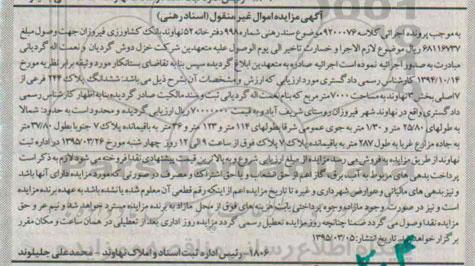 آگهی مزایده اموال غیر منقول (اسناد رهنی)
به موجب پرونده اجرائی کلاسه ۹۲۰۰۰۷۶ موضوع سند رهنی شماره ۹۹۸ دفتر خانه ۵۲ نهاوند، بانک کشاورزی فیروزان جهت وصول مبلغ
۶۸۱۱۶۷۳۷ ریال موضوع لازم الاجرا و خسارت تاخیر الی یوم الوصول علیه متعهدین شرکت خزل دوش گردیان و نعمت اله گردیانی
مبادرت به صدور اجرائیه نموده است اجرائیه صادره به متعهدین ابلاغ گردیده سپس بنا به تقاضای بستانکار مورد وثیقه برابر نظریه مورخ
۱۳۹۴/۱۰/۱۴ کارشناس رسمی دادگستری مورد ارزیابی که ارزش و مشخصات آن بشرح ذیل می باشد: ششدانگ پلاک ۲۴۴ فرعی از
۷ اصلی بخش ۲ نهاوند به مساحت ۷۰۰۰ متر مربع که بنام نعمت اله گردیانی ثبت و سند مالکیت صادر گردیده بنا به اظهار کارشناس رسمی
دادگستری واقع در نهاوند شهر فیروزان روستای شریف آباد و به قیمت ۷۰۰۰۰۰۰۰۰ ریال ارزیابی گردیده و محدود است به حدود: شمالا
به طولهای ۲۵/۸۰ متر و ۱/۳۰ متر به جوی عمومی شرقا بطولهای ۱۱۴ متر و ۱۲۳ متر و ۳۶ متر به باقیمانده پلاک ۷ جنوبا بطول ۳۷/۸۰ متر
به جاده مزارع غربا به طول ۲۸۷ متر به باقیمانده پلاک ۷ پلاک فوق از ساعت ۹ الی ۱۲ روز چهار شنبه مورخ ۱۳۹۵/۰۳/۲۶ در اداره ثبت
نهاوند از طریق مزایده به فروش می رسد مزایده از مبلغ ارزیابی شروع و به بالاترین قیمت پیشنهادی نقدا فروخته می شود لازم به ذکر است
پرداخت بدهی های مربوط به آب، برق، گاز اعم از حق انشعاب و یا حق اشتراک و مصرف در صورتی که مورد مزایده دارای آنها باشد
و نیز بدهی های مالیاتی و عوارض شهرداری و غیره تا تاریخ مزایده اعم از اینکه رقم قطعی آن معلوم شده یا نشده باشد به عهده برنده مزایده
است و نیز در صورت وجود مازاد وجوه پرداختی بابت هزینه های فوق از محل مازاد به برنده مزایده مسترد خواهد شد و نیم عشر و حق
مزایده نقدا وصول می گردد ضمنا چنانچه روز مزایده تعطیل رسمی گردد مزایده روز اداری بعد از تعطیلی در همان ساعت و مکان مقرر
برگزار خواهد شد تاریخ انتشار: ۱۳۹۵/۰۳/۰۵
۱۸۰۶ - رئیس اداره ثبت اسناد و املاک نهاوند - محمدعلی جلیلوند